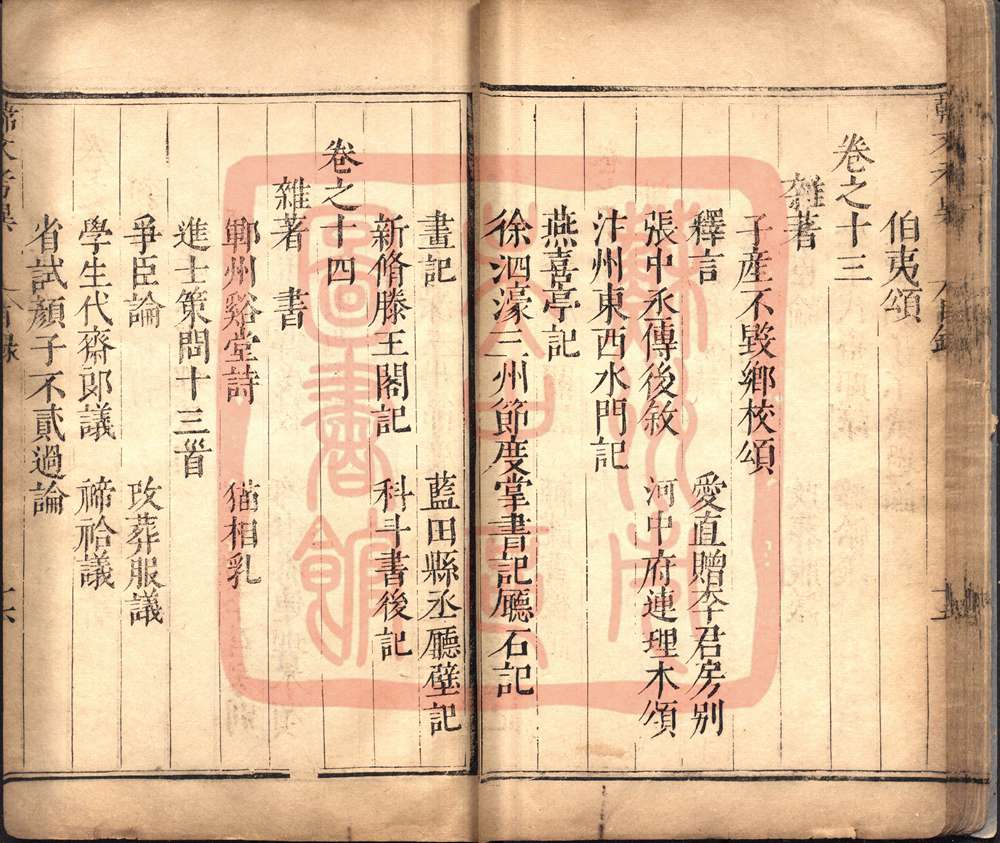 伯夷頌
卷之十三
雜著
子產不毀鄉校頌
釋言 愛直贈李君房別
張中丞傳後敘 河中府連理木頌
汴州東西水門記
燕喜亭記
徐泗濠三州節度掌書記廳石記
畫記 藍田縣丞廳壁記
新脩滕王閣記 科斗書後記
卷之十四
雜著 書
鄆州谿堂詩 猫相乳
進士策問十三首
爭臣論 改葬服議
學生代齋郎議 禘祫議
省試顏子不貳過論
韓文考異
圖書館